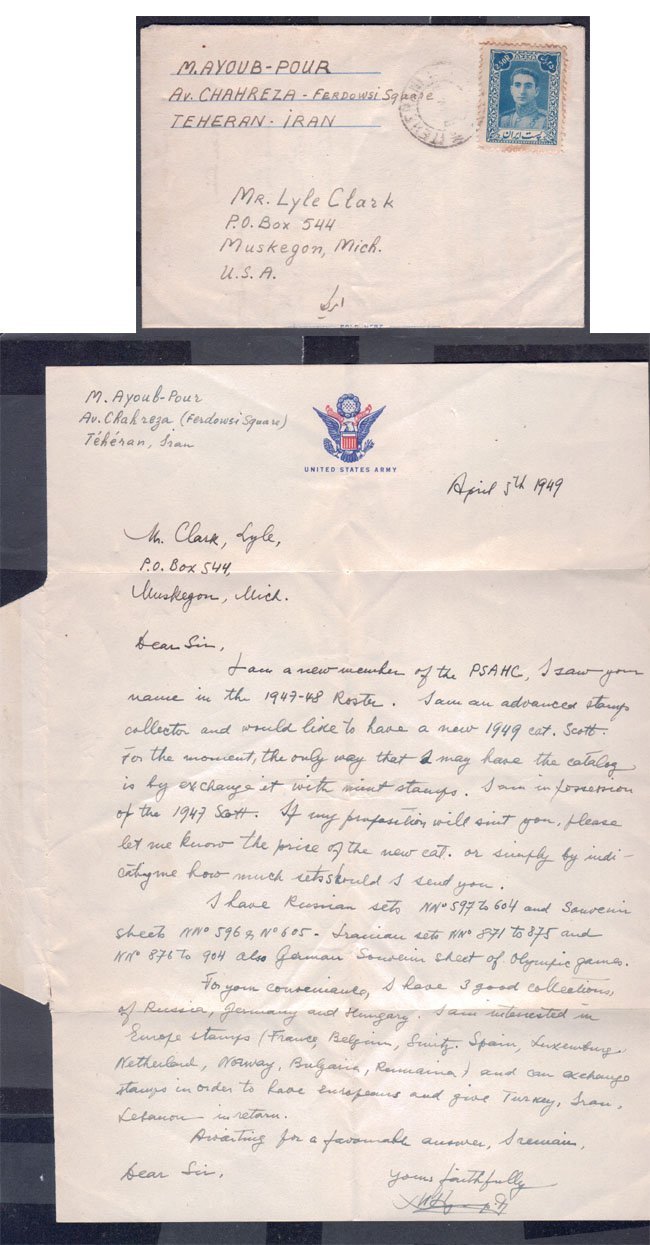 M. AYOUB-POUR
Av. CHAHREZA - FERDOWSI Square
TEHERAN - IRAN
پست ایران
MR. Lyle Clark
P.O. Box 544
Muskegon, Mich.
U.S.A.
M. Ayoub-Pour
Av. Chahreza (Ferdowsi Square)
Téhéran, Iran
UNITED STATES ARMY
April 5th 1949
Mr. Clark, Lyle,
P.O. Box 544,
Muskegon, Mich.
Dear Sir,
I am a new member of the PSAHC, I saw your
name in the 1947-48 Roster. I am an advanced stamps
collector and would like to have a new 1949 cat. Scott.
For the moment, the only way that I may have the catalog
is by exchange it with mint stamps. I am in possession
of the 1947 Scott. If my proposition will suit you, please
let me know the price of the new cat. or simply by indi-
cating me how much sets should I send you.
I have Russian sets NN° 597 to 604 and Souvenir
sheets NN° 596 & N° 605 - Iranian sets NN° 871 to 875 and
NN° 876 to 904 also German Souvenir sheet of Olympic games.
For your convenience, I have 3 good collections,
of Russia, Germany and Hungary. I am interested in
Europe stamps (France, Belgium, Switz. Spain, Luxemburg,
Netherland, Norway, Bulgaria, Rumania) and can exchange
stamps in order to have europeans and give Turkey, Iran,
Lebanon in return.
Awaiting for a favourable answer, I remain,
Dear Sir,
Yours faithfully